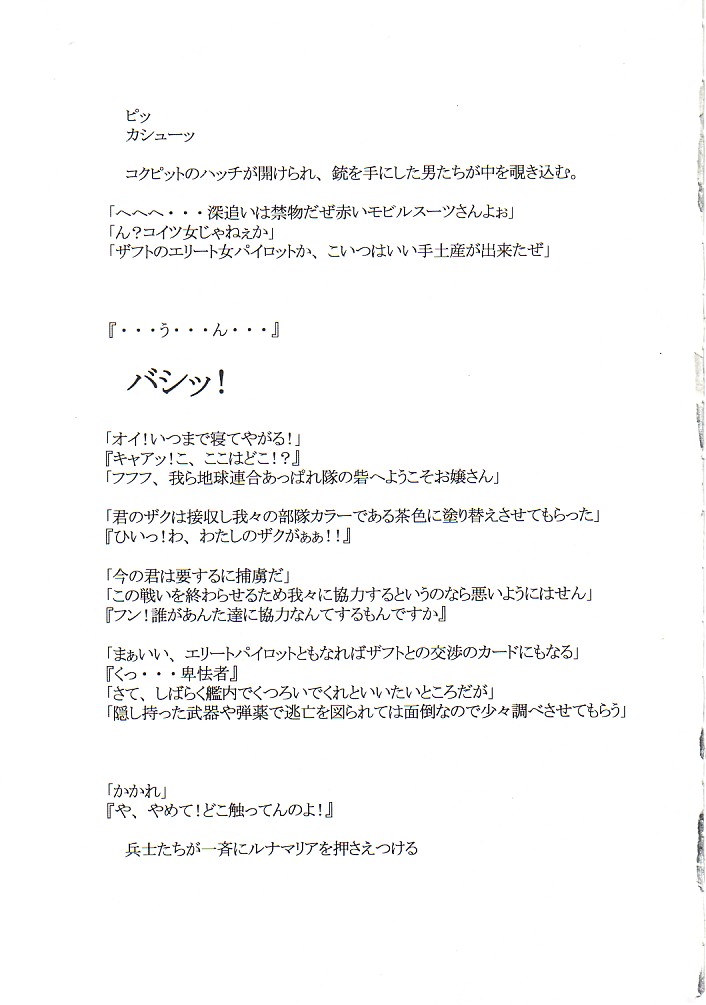 ピッ
カシューッ
コクピットのハッチが開けられ、銃を手にした男たちが中を覗き込む。
「へへへ・・・深追いは禁物だぜ赤いモビルスーツさんよぉ」
「ん？コイツ女じゃねぇか」
「ザフトのエリート女パイロットか、こいつはいい手土産が出来たぜ」
『・・・う・・・ん・・・』
バシッ！
「オイ！いつまで寝てやがる！」
『キャアッ！こ、ここはどこ！？』
「フフフ、我ら地球連合あっぱれ隊の砦へようこそお嬢さん」
「君のザクは接収し我々の部隊カラーである茶色に塗り替えさせてもらった」
『ひいっ！わ、わたしのザクがぁぁ！！』
「今の君は要するに捕虜だ」
「この戦いを終わらせるため我々に協力するというのなら悪いようにはせん」
『フン！誰があんた達に協力なんてするもんですか』
「まぁいい、エリートパイロットともなればザフトとの交渉のカードにもなる」
『くっ・・・卑怯者』
「さて、しばらく艦内でくつろいでくれといいたいところだが」
「隠し持った武器や弾薬で逃亡を図られては面倒なので少々調べさせてもらう」
「かかれ」
『や、やめて！どこ触ってんのよ！』
兵士たちが一斉にルナマリアを押さえつける